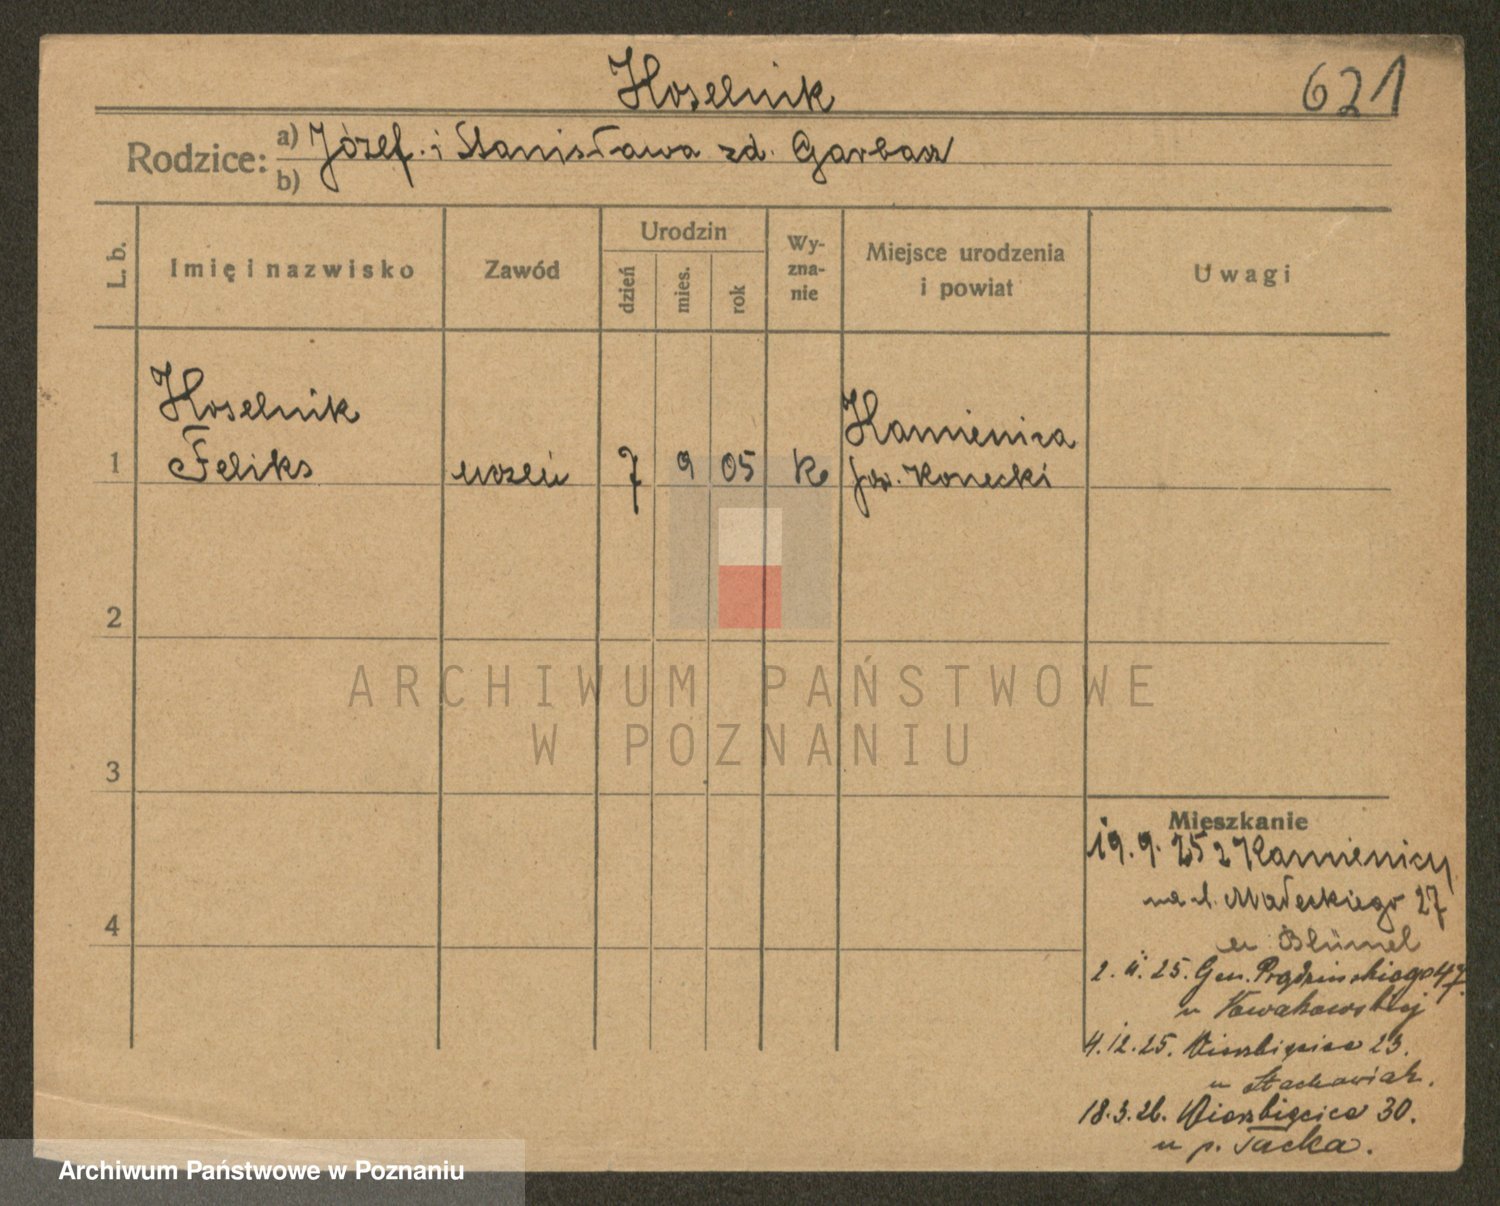 Koselnik
621
Rodzice: a) Józef i Stanisława zd. Garbacz
b)
L. b.
Imię i nazwisko
Zawód
Urodzin
dzień
mies.
rok
Wy-
zna-
nie
Miejsce urodzenia
i powiat
Uwagi
Koselnik
1 Feliks uczeń 7 9 05 k Kamienica
pow. Konecki
2
3
4
ARCHIWUM PAŃSTWOWE
W POZNANIU
Mieszkanie
19.9.25 z Kamienicy
na ul. Małeckiego 27
u Blümel
2.11.25. Gen. Prądzińskiego 47.
u Nowakowskiej
4.12.25. Wierzbięcice 23.
u Stachowiak.
18.3.26. Wierzbięcice 30.
u p. Tacka.
Archiwum Państwowe w Poznaniu